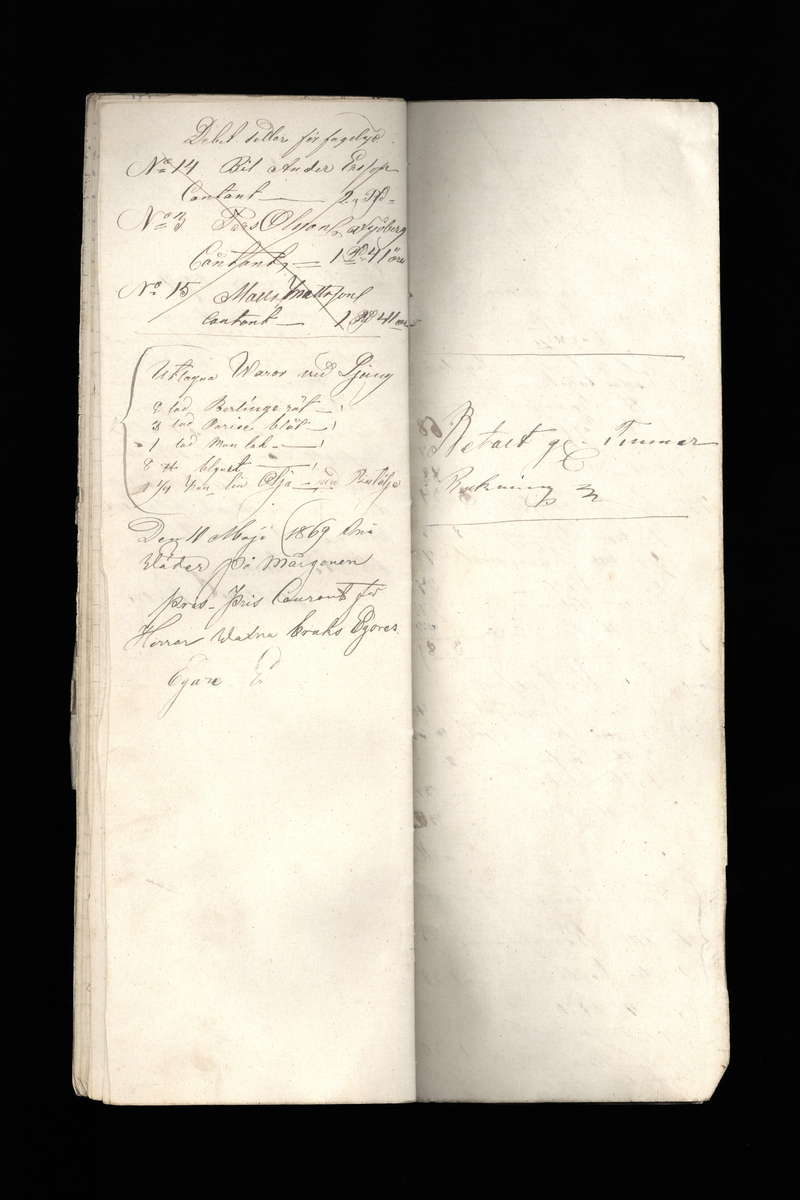 Debet sedlar för
No 14 Bil Ander Ersson
Contant — 2 Rd
No 3 Pers Olsson, Sjöberg
Contant — 1 Rd 41 öre
No 15 Matts Mattsson
Contant — 1 Rd 41 öre
Uttagna Waror vid
2 lod Berlinge röt — 1
3 lod Pariser blåt — 1
1 lod — 1
8 # blyvit — 1
1 1/4 Kan lin Olja —
Den 11 Maji 1869 Snö
Wäder på Mårgonen
pris- Pris Courant för
Herrar Watna bruks Egores
Egare E
Betalt g. Timmer
Räkning